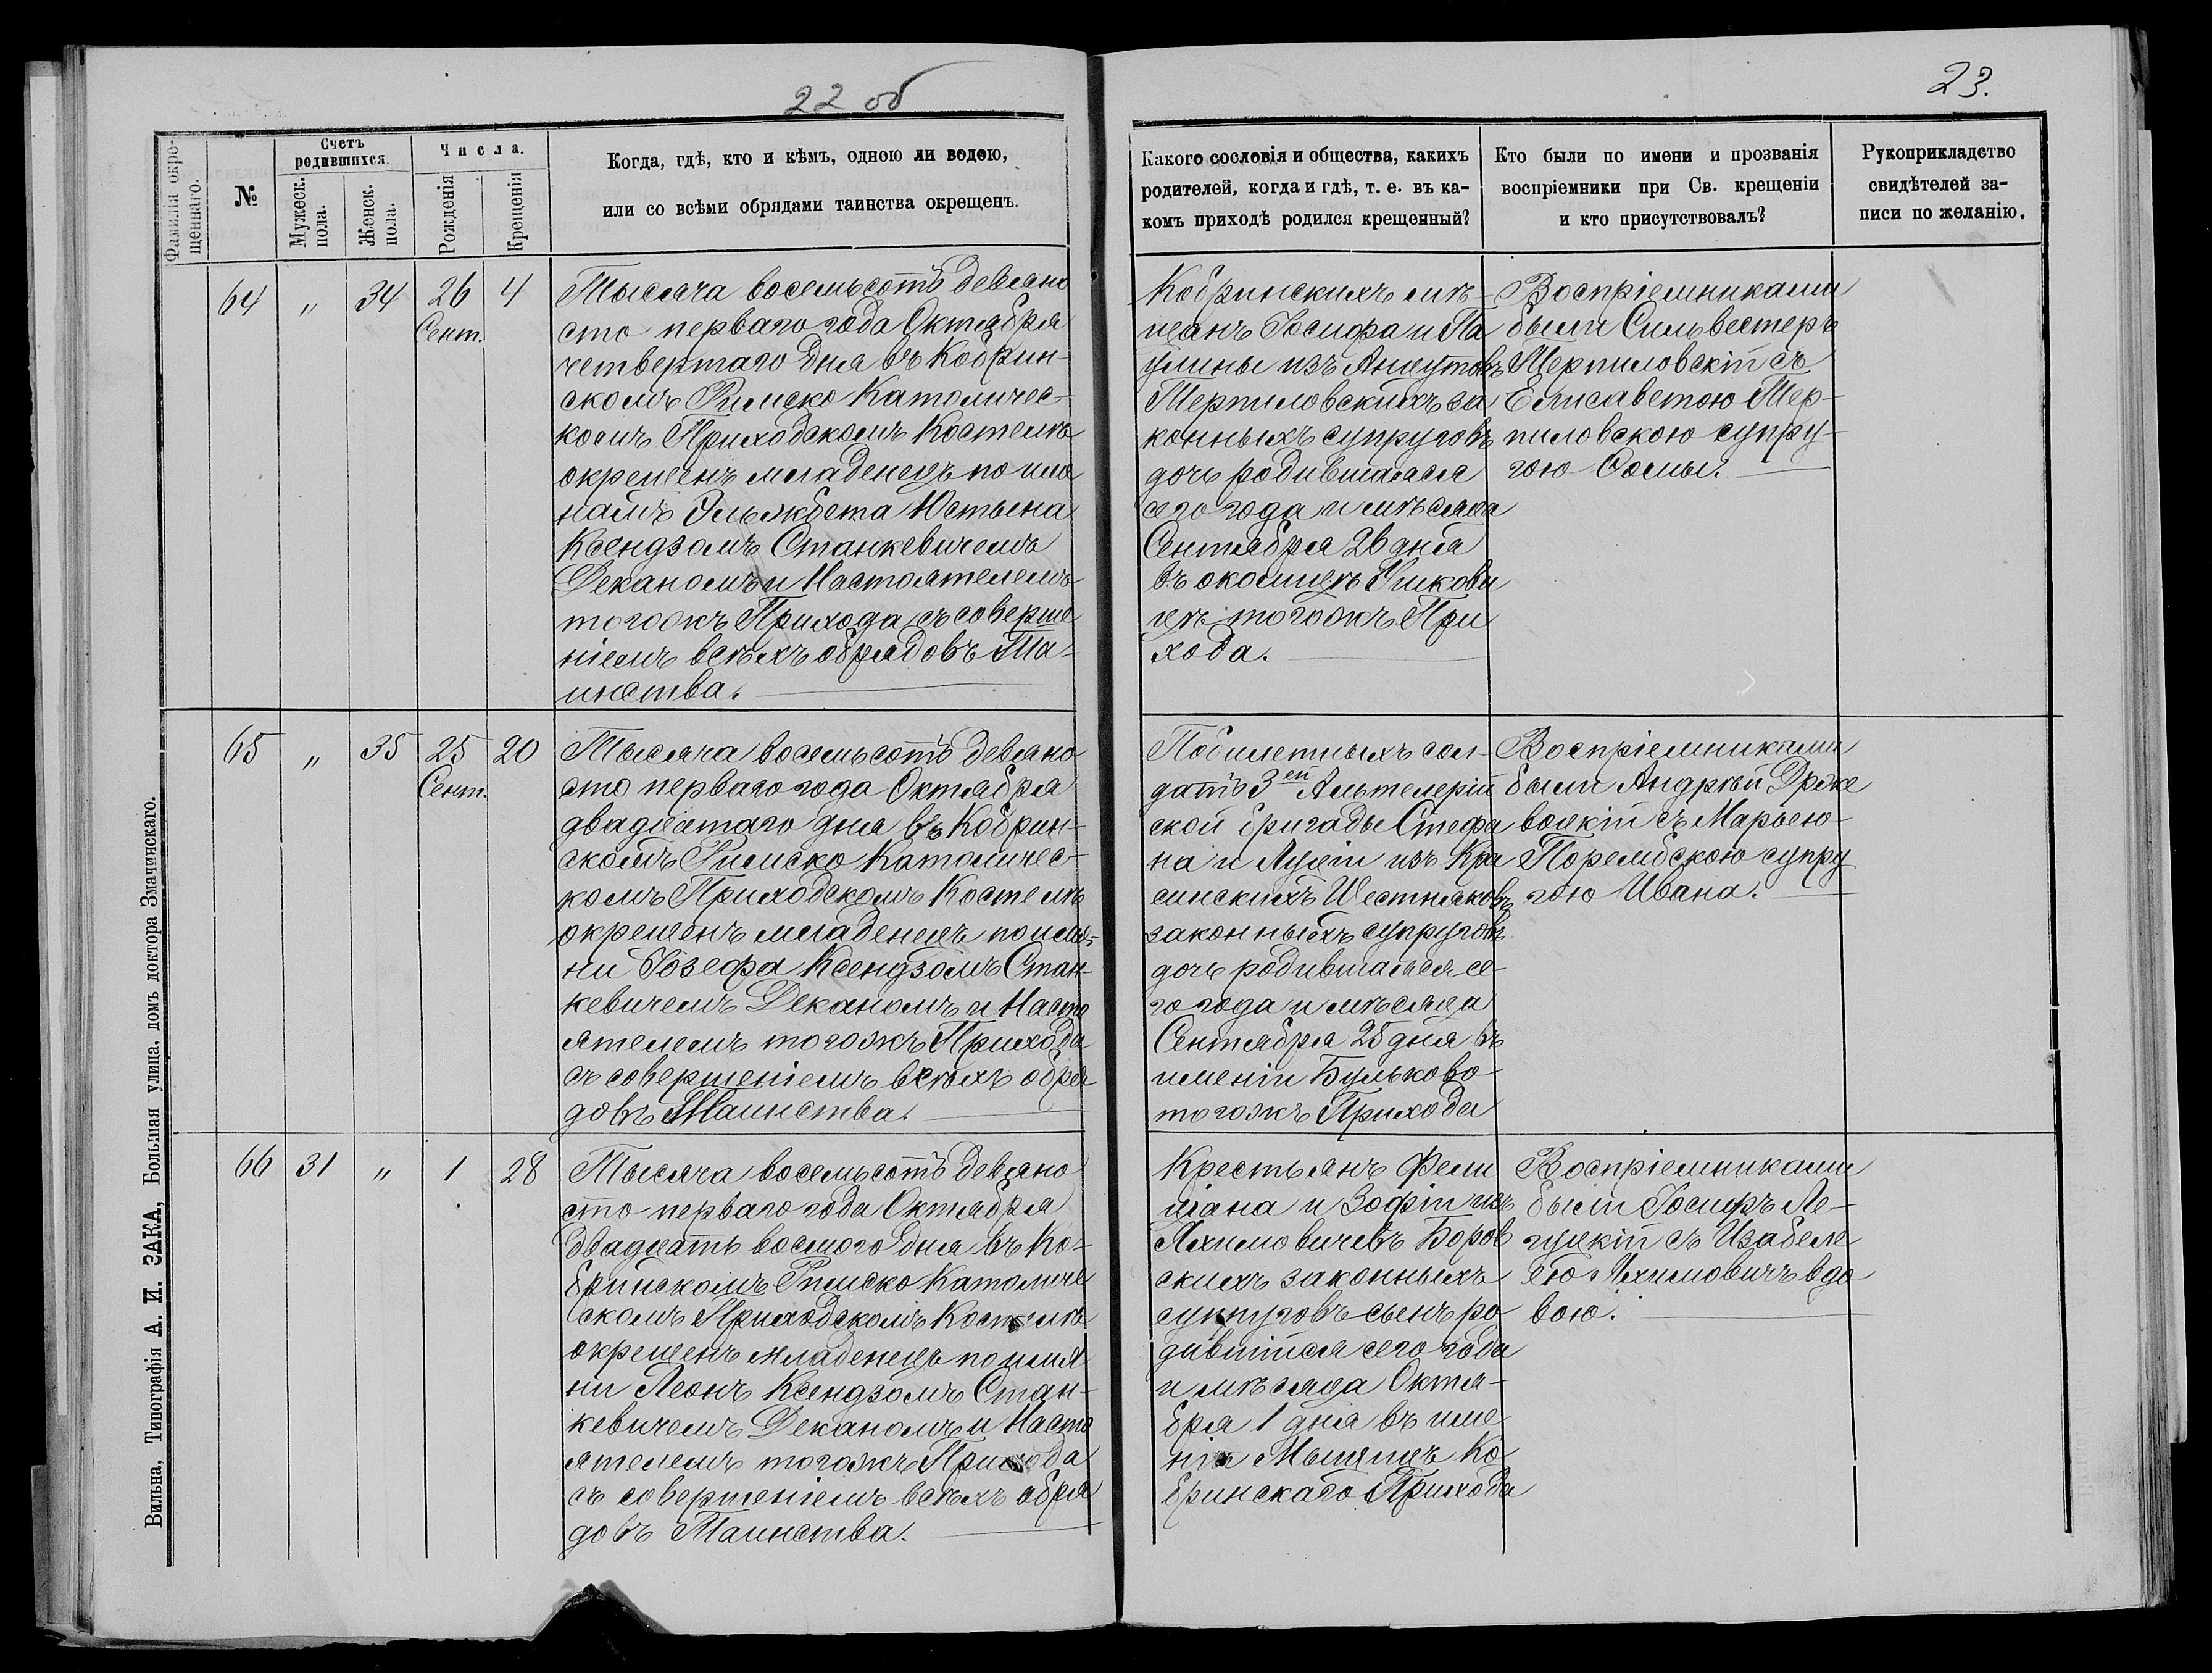 22 об
23.
Фамилія окре-
щеннаго.
№
Счетъ
родившихся.
Мужеск.
пола.
Женск.
пола.
Числа.
Рожденія
Крещенія
Когда, гдѣ, кто и кѣмъ, одною ли водою,
или со всѣми обрядами таинства окрещенъ.
Какого сословія и общества, какихъ
родителей, когда и гдѣ, т. е. въ ка-
комъ приходѣ родился крещенный?
Кто были по имени и прозванія
воспріемники при Св. крещеніи
и кто присутствовалъ?
Рукоприкладство
свидѣтелей за-
писи по желанію.
64 „ 34 26 4
Сент.
Тысяча восемьсотъ девяно
сто перваго года Октября
четвертаго дня въ Кобрин-
скомъ Римско Католичес-
комъ Приходскомъ Костелѣ
окрещенъ младенецъ по име
намъ Эльжбета Юстына
Ксендзомъ Станкевичемъ
Деканомъ и Настоятелемъ
тогожъ Прихода, съ соверше
ніемъ всѣхъ обрядовъ Та-
инства.
Кобринскихъ мѣ-
щанъ Іосифа и Па
улины изъ Аншутовъ
Терпиловскихъ за
конныхъ супруговъ
дочь родившаяся
сего года и мѣсяца
Сентября 26 дня
въ околицѣ
тогожъ При
хода.
Воспріемниками
были Сильвестеръ
Терпиловскій съ
Елисаветою Тер-
пиловскою супру-
гою Фомы.
65 „ 35 25 20
Сент.
Тысяча восемьсотъ девяно
сто перваго года Октября
двадцатаго дня въ Кобрин-
скомъ Римско Католичес-
комъ Приходскомъ Костелѣ
окрещенъ младенецъ по име-
ни Іозефа Ксендзомъ Стан-
кевичемъ Деканомъ и Насто
ятелемъ тогожъ Прихода
съ совершеніемъ всѣхъ обря
довъ Таинства.
Побилетныхъ сол-
датъ 3ей Альтелерій
ской бригады Стефа
на и Луціи изъ Кра
синскихъ Шестняковъ
законныхъ супруговъ
дочь родившаяся се-
го года и мѣсяца
Сентября 25 дня въ
имѣніи Бульково
тогожъ Прихода
Воспріемниками
были Андрѣй Држе
вецкій съ Марьею
Порембскою супру
гою Ивана.
66 31 „ 1 28
Тысяча восемьсотъ девяно
сто перваго года Октября
Двадцать восмого дня въ Ко-
бринскомъ Римско Католиче
скомъ Приходскомъ Костелѣ
окрещенъ младенецъ по имя
ни Леонъ Ксендзомъ Стан-
кевичемъ Деканомъ и Насто
ятелемъ тогожъ Прихода
съ совершеніемъ всѣхъ обря
довъ Таинства.
Крестьянъ Фели
ціана и Зофіи изъ
Яхимовичевъ Боров
скихъ законныхъ
супруговъ сынъ ро
дившійся сего года
и мѣсяца Октя-
бря 1 дня въ име
ніи Мыщицъ Ко
бринскаго Прихода
Воспріемниками
были Іосифъ Ле-
гуцкій съ Изабеле
ею Яхимовичъ вдо
вою.
Вильна, Типографія А. И. ЗАКА, Большая улица, домъ доктора Змачинскаго.